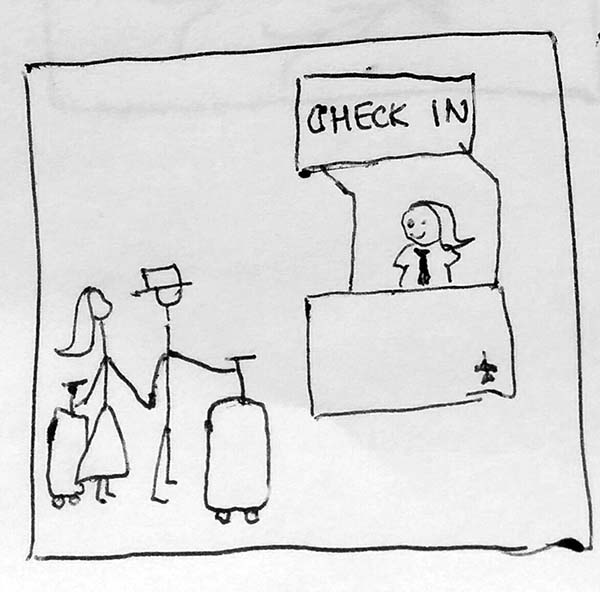 CHECK IN